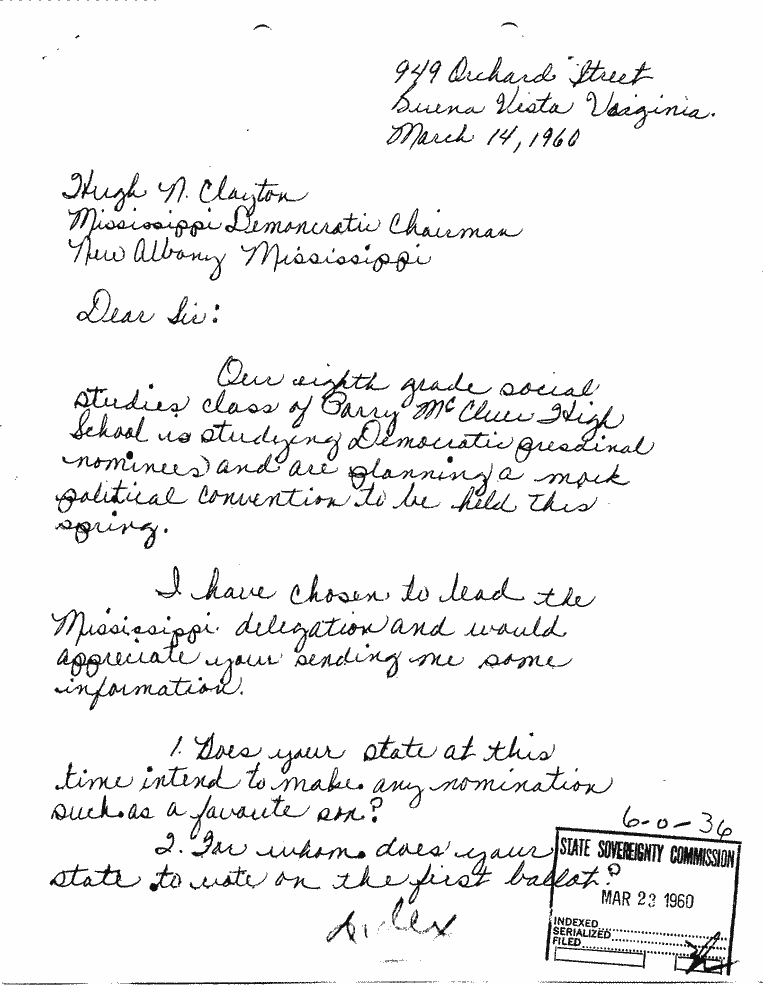 949 Orchard Street
Buena Vista Virginia.
March 14, 1960
Hugh N. Clayton
Mississippi Demoncratic Chairman
New Albany Mississippi
Dear Sir:
Our eighth grade social
studies class of Parry McCluer High
School is studying Democratic presdinal
nominees and are planning a mock
political convention to be held this
spring.
I have chosen to lead the
Mississippi delegation and would
appreciate your sending me some
information.
1. Does your state at this
time intend to make any nomination
such as a favorite son?
2. For whom does your
state to vote on the first ballot?
6-0-36
STATE SOVEREIGNTY COMMISSION
MAR 23 1960
INDEXED
SERIALIZED
FILED
Index